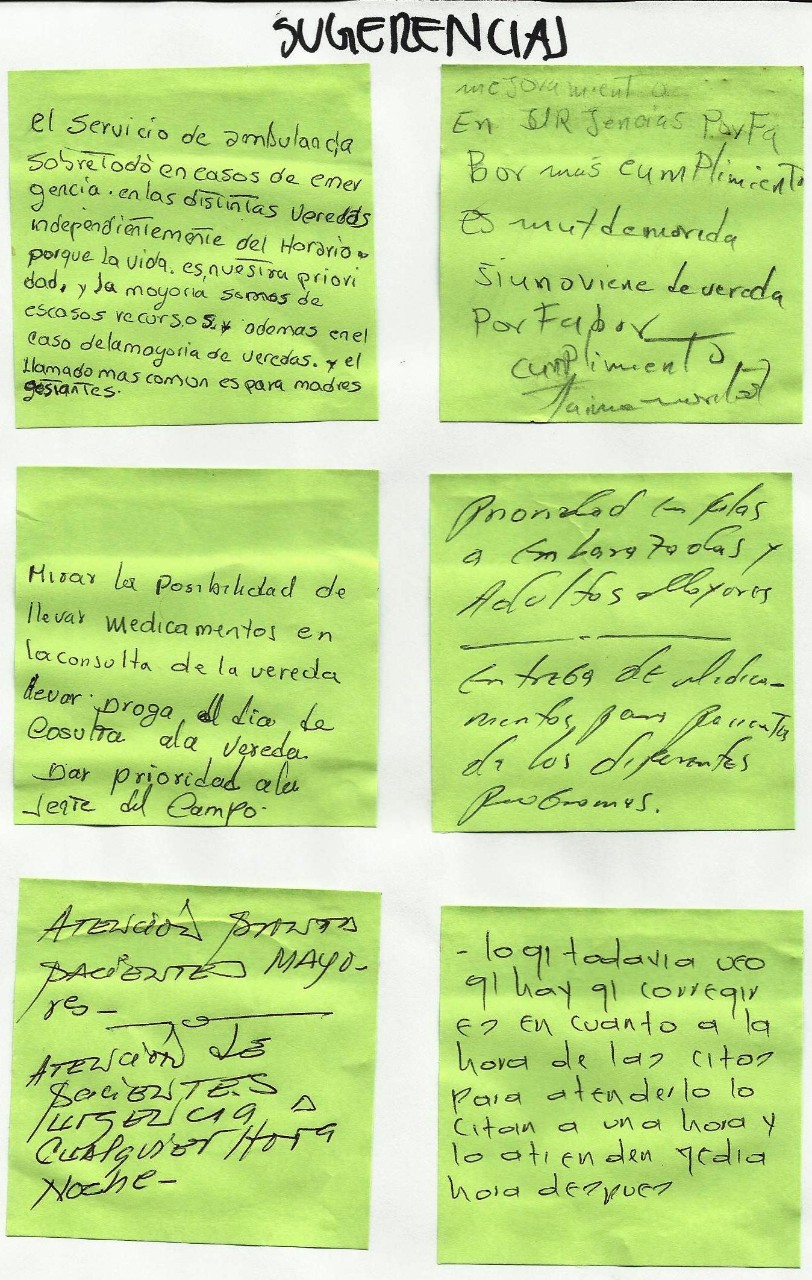 SUGERENCIAS
el servicio de ambulancia
sobretodo en casos de emer
gencia. en las distintas veredas
independientemente del Horario.
porque la vida. es, nuestra priori
dad, y la mayoria somos de
escasos recursos, y ademas en el
caso delamayoria de veredas. y el
llamado mas comun es para madres
gestantes.
mejoramiento
En URJencias PorFa
Bor mas cumPlimiento
es muy demorada
siunoviene de vereda
PorFabor
cumplimiento
Jaime
Mirar la posibilidad de
llevar medicamentos en
laconsulta de la vereda
llevar droga el dia de
Cosulta ala vereda.
Dar prioridad ala
Jente del Campo.
Prioridad en filas
a Embarazadas y
Adultos Mayores
Entrega de Medica-
mentos para pacientes
de los diferentes
Programas.
ATENCIÓN PRONTA
PACIENTES MAYO-
res-
ATENCIÓN DE
PACIENTES
URGENCIA A
CUALQUIER HORA
Noche-
- lo qi todavia veo
qi hay qi corregir
es en cuanto a la
hora de las citas
para atenderlo lo
citan a una hora y
lo atienden media
hora despues